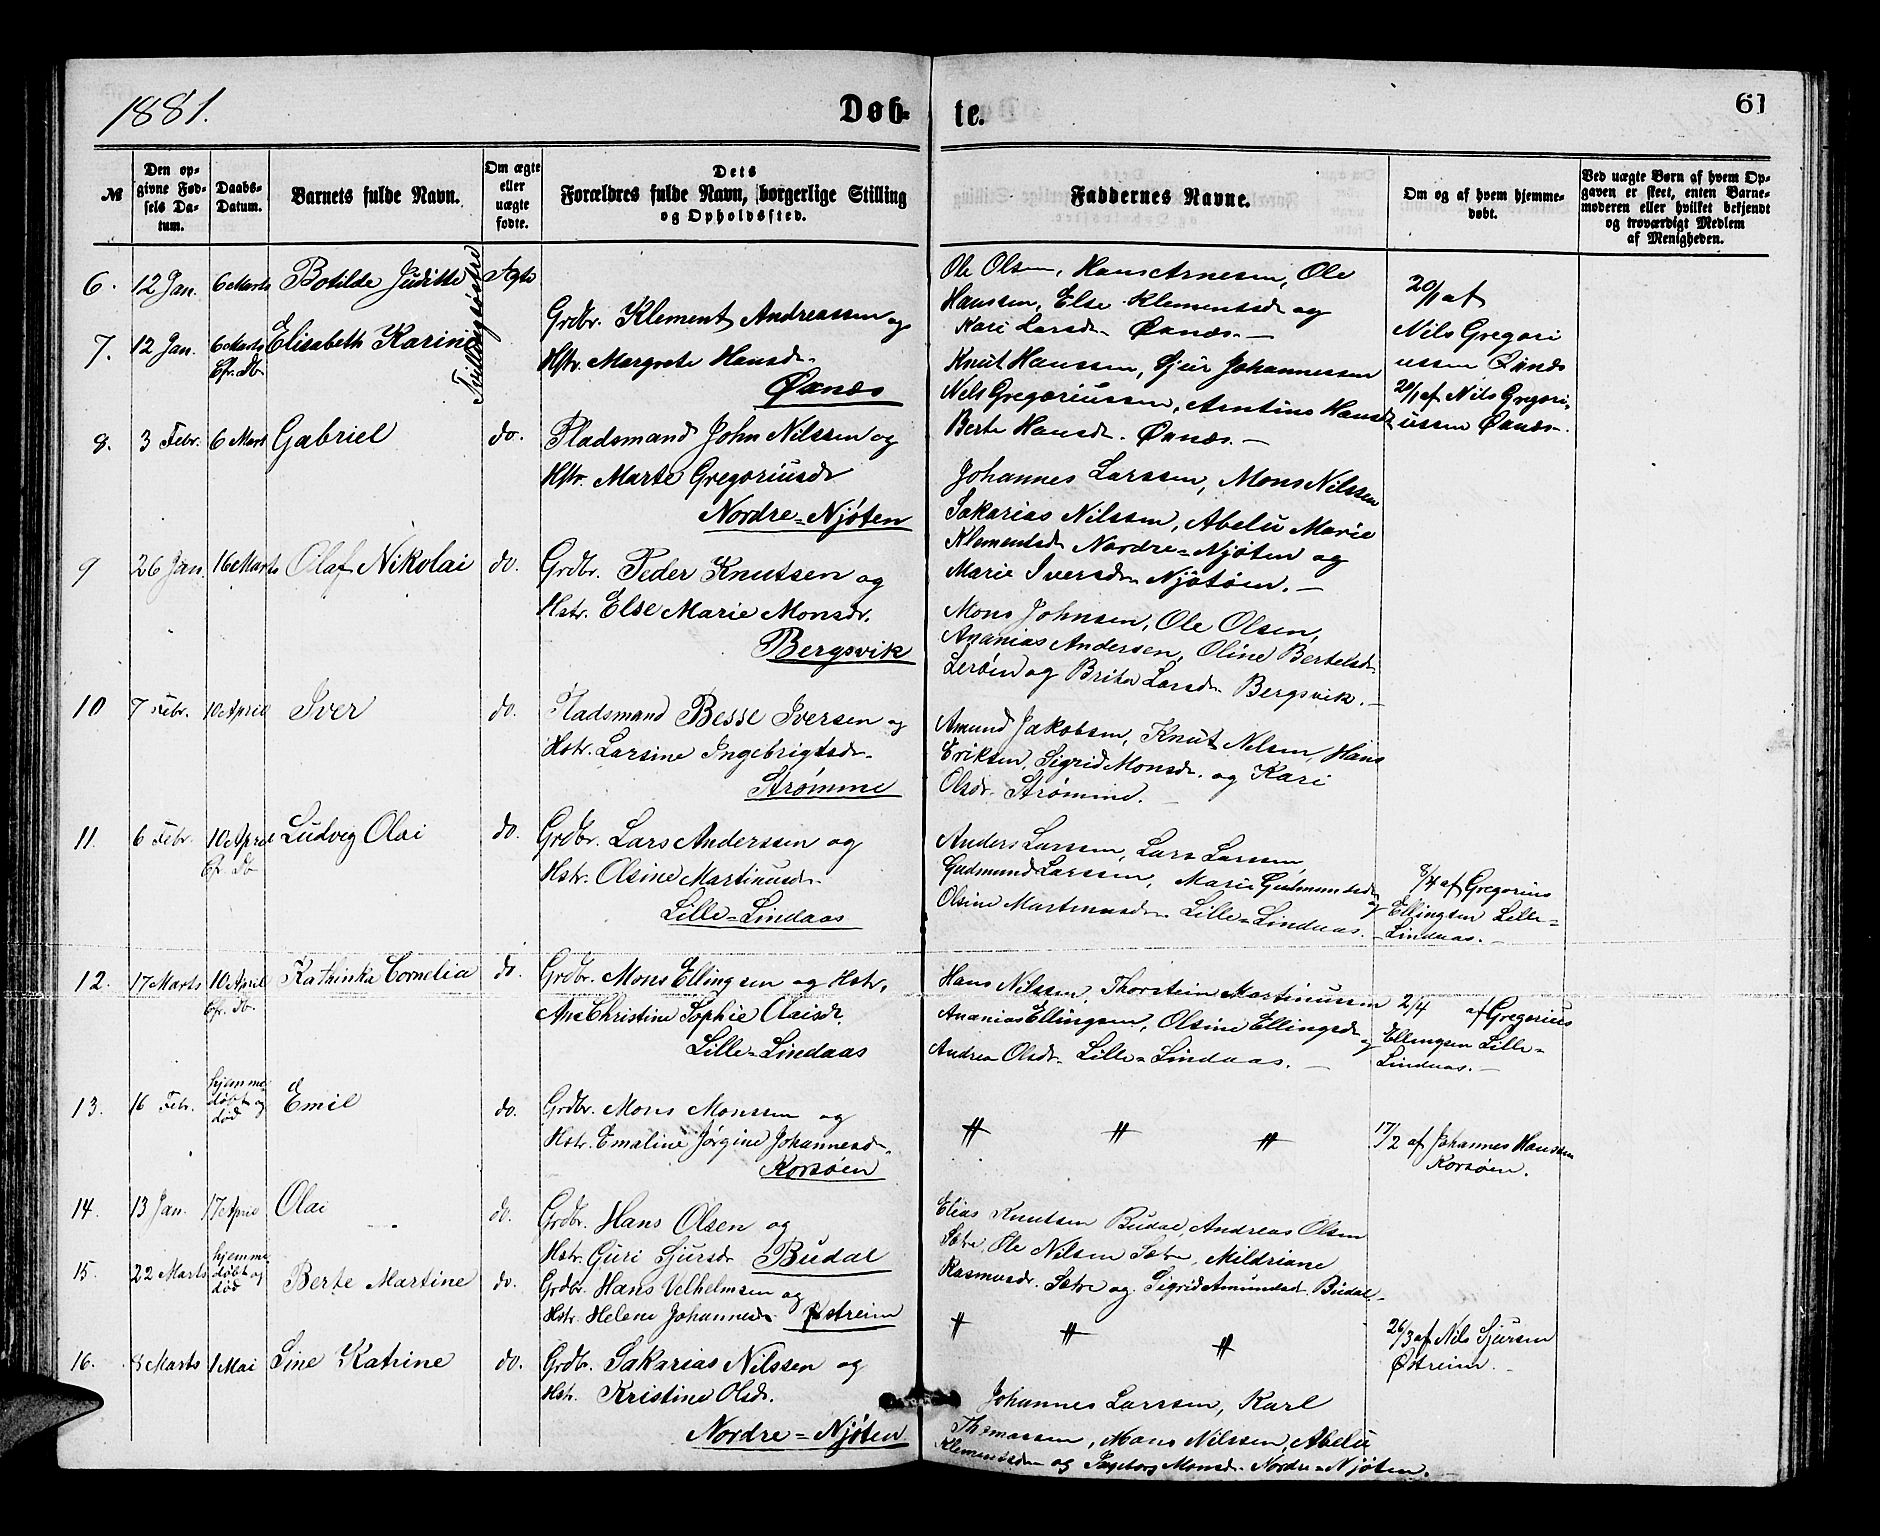 1881.
Døb-
te.
61
№
Den op-
givne Fød-
sels Da-
tum.
Daabs-
Datum.
Barnets fulde Navn.
Om ægte
eller
uægte
fødte.
Dets
Forældres fulde Navn, borgerlige Stilling
og Opholdssted.
Faddernes Navne.
Om og af hvem hjemme-
døbt.
Ved uægte Børn af hvem Op-
gaven er skeet, enten Barne-
moderen eller hvilket bekjendt
og troværdigt Medlem
af Menigheden.
6. 12 Jan. 6 Marts Botilde Juditte Ægte
7. 12 Jan. 6 Marts Elisabeth Karine
Cfr. Db.
Tvillingsøstre
Grdbr. Klement Andreassen og
Hstr. Margrete Hansdr.
Øanæs
Ole Olsen, Hans Arnesen, Ole
Hanssen, Else Klementsdr og
Kari Larsdr Øanæs.—
Knut Hanssen, Sjur Johannessen
Nels Gregoriussen, Arntine Hansdr
Berte Hansdr. Øanæs.—
20/1 af
Nils Gregori
ussen Øanæs
20/1 af Nils Gregori-
ussen Øanæs.
8. 3 Febr. 6 Mart Gabriel do. Pladsmand John Nilssen og
Hstr. Marte Gregoriusdr
Nordre=Njøten
Johannes Larssen, Mons Nilssen
Sakarias Nilssen, Abelu Marie
Klementsdr Nordre=Njøten og
Marie Iversdr Njøtøen.—
9 26 Jan. 16 Marts Olaf Nikolai do. Grdbr. Peder Knutsen og
Hstr. Else Marie Monsdr.
Bergsvik
Mons Johnsen, Ole Olsen,
Ananias Andersen, Oline Bertelsdr
Lerøen og Brita Larsdr Bergsvik.—
10 7 Febr. 10 April Iver do. Pladsmand Besse Iversen og
Hstr. Larsine Ingebrigtsdr.
Strømme
Amund Jakobsen, Knut Nilsen, Hans
Eriksen, Sigrid Monsdr. og Kari
Olsdr. Strømme.—
11. 6 Febr. 10 April Ludvig Olai do. Grdbr. Lars Anderssen og
Cfr. Db
Hstr. Olsine Martinusdr.
Lille=Lindaas
Anders Larssen, Lars Larssen,
Gudmund Larssen, Marie Gudmundsdr
og
Olsine Martinusdr. Lille=Lindaas.—
8/4 af Gregorius
Ellingsen Lille=
Lindaas.—
12. 17 Marts 10 April Kathinka Cornelia do. Grdbr. Mons Ellingsen og Hstr.
Cfr. Db.
Ane Christine Sophie Olaisdr.
Lille=Lindaas
Hans Nilssen, Thorstein Martinussen
Ananias Ellingsen, Olsine Ellingsdr
og
Andrea Olsdr. Lille=Lindaas.—
2/4 af Gregorius
Ellingsen Lille=
Lindaas.—
13. 16 Febr. hjemme
døbt og
død
Emil do. Grdbr. Mons Monssen og
Hstr. Emaline Jørgine Johannesdr.
Korsøen
〃 〃 〃
17/2 af Johannes Hanssen
Korsøen.
14. 13 Jan. 17 April Olai do. Grdbr. Hans Olsen og
Hstr. Guri Sjursdr Budal
Elias Knutsen Budal, Andreas Olsen
Sætre, Ole Nilsen Sætre, Mildriane
Rasmusdr. Sætre og Sigrid Amundsdr. Budal.—
15. 22 Marts hjemme
døbt og
død
Berte Martine do. Grdbr. Hans Velhelmsen og
Hstr. Helene Johannesdr. Østreim
〃 〃 〃
26/3 af Nils Sjursen
Østreim.—
16. 8 Marts 1 Mai Sine Katrine do. Grdbr. Sakarias Nilssen og
Hstr. Kristine Olsdr.
Nordre=Njøten
Johannes Larssen, Karl
Thomassen, Mons Nilssen, Abelu
Klementsdr og Ingeborg Monsdr. Nordre=Njøten.—